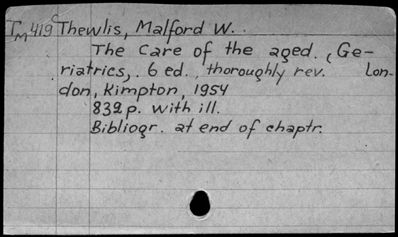 Tm419c Thewlis, Malford W.
The care of the aged. (Ge-
riatrics, . 6 ed., thoroughly rev. Lon-
don, Kimpton, 1954
832 p. with ill.
Bibliogr. at end of chaptr.